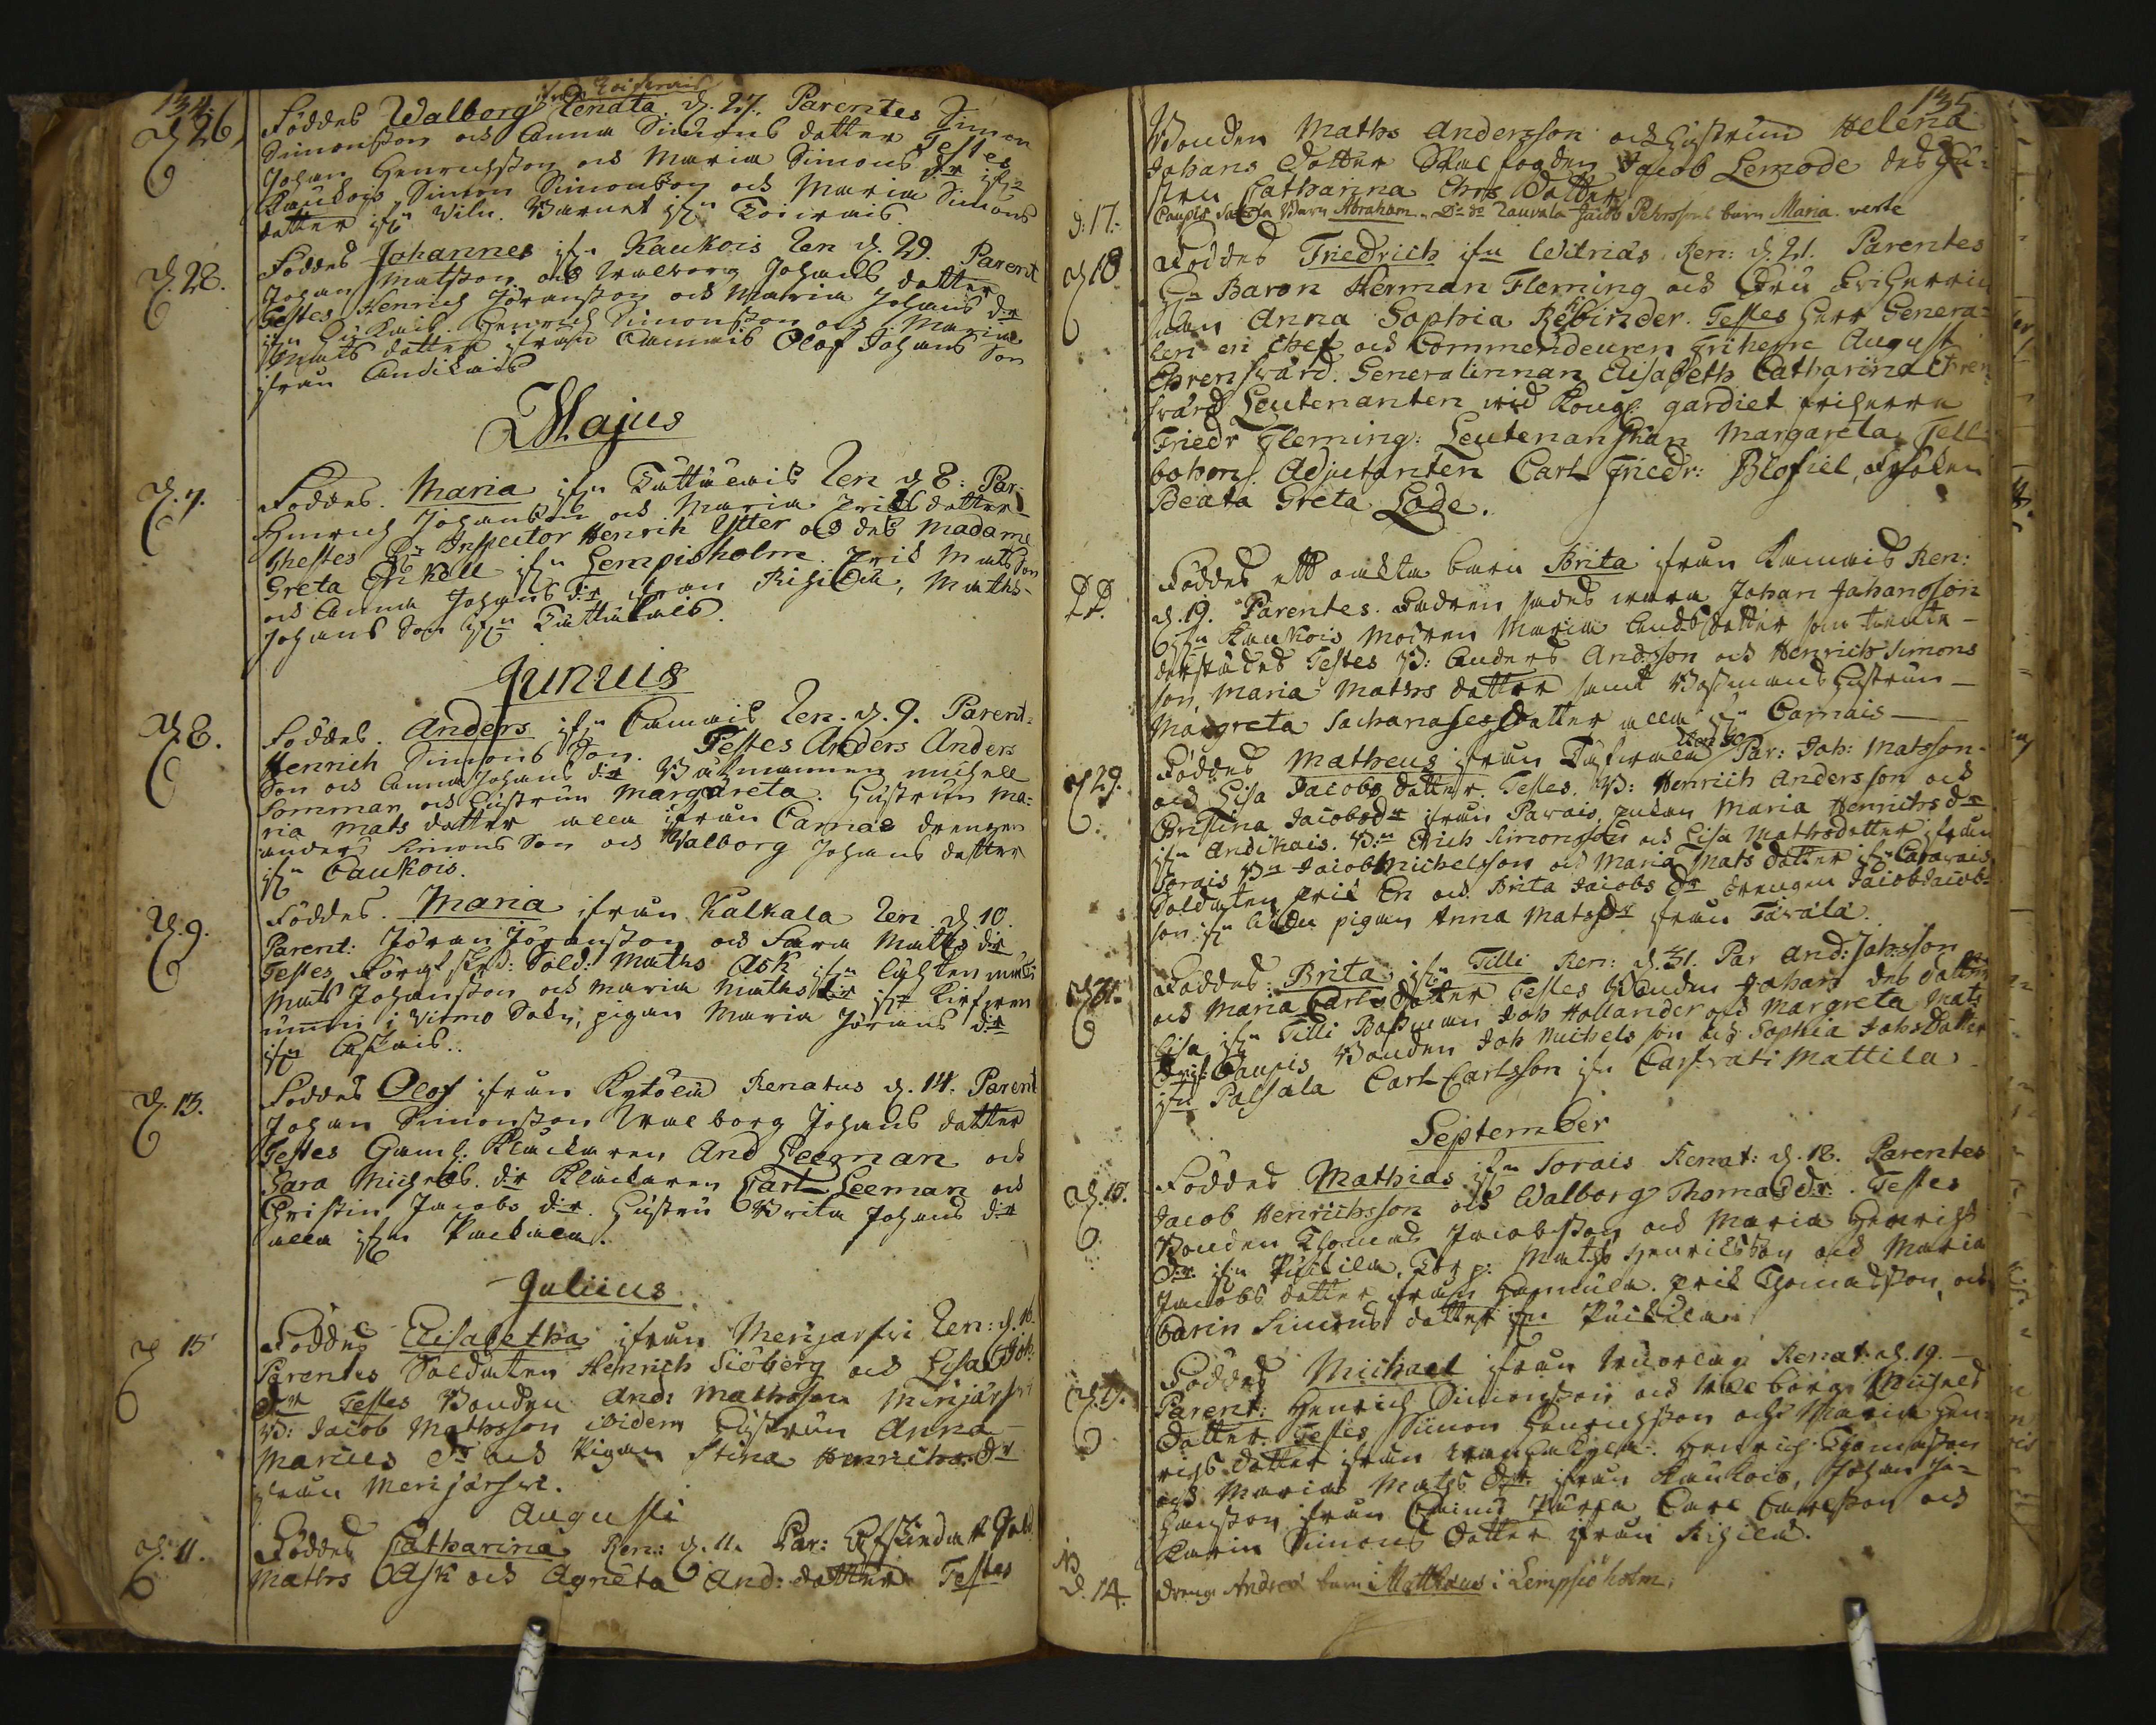 134.
från Koiwais
d 26, Föddes Walborg Renata d. 27. Parentes Simon
Simonsson och Anna Simons datter Testes
Johan Henrichsson och Maria Simons d:r ifrn
Kaukois Simon Simonsson och Maria Simons
datter ifrn Viln. Barnet ifrn Koiwais
d. 28. Föddes Johannes ifrn Kaukois Ren d. 29. Parent
Johan Matsson och Walborg Johans datter
Testes Henrich Jöransson och Maria Johans d:r
Henrich Simonsson och Maria
Mats datter ifrån Camais Olof Johans Son
ifrån Andikais
Majus
d. 7. Föddes. Maria ifrn Tuttukais Ren d 8: Par:
Henrich Johansson och Maria Erichs datter
Thestes Hr Inspector Henrik Ytter och des Madame
Greta Enkell ifrn Lempisholm. Erik Mats Son
och Anna Johans d:r ifrån Kihilä, Maths
Johans Son ifrn Tuttukais.
Junuis
d 8. Föddes. Anders ifrn Camais Ren. d. 9. Parent:
Henrich Simons Son. Testes Anders Anders
Son och Anna Johans d:r Båtzmannen Michell
Somman och Hustrun Margareta. Hustrun Ma:
ria Mats datter alla ifrån Camais drengen
Anders Simons Son och Walborg Johans datter
ifrn Caukois.
d. 9. Föddes. Maria ifrån Kalkala Ren d. 10.
Parent: Jöran Jöransson och Sara Maths d:r
Testes Sold: Maths Ask ifrn
Mats Johansson och Maria Maths d:r ifrn
i Virmo Sokn, pigan Maria Jörans d:r
ifrn Askais.
d. 13. Föddes Olof ifrån Kytölä Renatus d. 14. Parent
Johan Simonsson Walborg Johans datter
Testes Gaml: Klackaren And Leeman och
Sara Michels d:r Klackaren Carl Leeman och
Christin Jacobs d:r. Hustru Brita Johans d:r
alla ifrn Puckila.
Juliius
d 15 Föddes Elisabetha ifrån Merijärfwi Ren: d. 16.
Parentes Soldaten Henrich Siöberg och Lysa Joh:
dr Testes Bonden And: Mathsson Merijärfwi
B: Jacob Mathsson ibidem Hustrun Anna
Marcus dr och Pigan Stina Henrichs dr
ifrån Merijärfwi.
Augusti
d. 11. Föddes Catharina Ren: d. 11. Par: Afskedat Sold
Mathrs Ask och Agneta And: datter Testes
135.
Bonden Maths Andersson och Hustrun Helena
Johans datter Skal fogden Jacob Lemode des Hu:
stru Catharina Chrs Datter
d: 17. Caupis Barn Abraham Zauvala Jacob Pehrssons barn Maria. verte
d 18 Föddes Friedrich ifrn Witnäs Ren: d. 21. Parentes
Hr Baron Herman Fleming och Fru Friherrin
nan Anna Sophia Rebinder. Testes Herr Genera:
len en Chef och Commendeuren Friherre August
Ehrensvärd. Generalinnan Elisabeth Catharina Ehren
svärd Leutenanten wid Kongl: gardiet friherre
Friedr Fleming: Leutenanskan Margareta Jell
bohm. Adjutanten Carl Friedr: Blofiel, Fröken
Beata Greta Lode.
Föddes ett oäkta barn Brita ifrån Kamais Ren:
d. 19. Parentes. Fadren sades wara Johan Johansson
ifrn Kaukois Modren Maria Andsdatter som tiente
derstädes Testes B: Anders Andsson och Henrich Simons
son, Maria Mathrs datter samt Båssmans Hustrun
Margreta Sachariases datter alla ifrn Camais
d 29. Föddes Matheus ifrån Ren 30 Par: Joh: Matsson
och Lisa Jacobs datter. Testes. B: Henrich Andersson och
Christina Jacobsdr ifrån Parais, enkan Maria Henrichs dr
ifrn Andikais. B:n Erich Simonsson och Lisa Mathsdotter ifrån
Sorais Bn Jacob Michelsson och Maria Mats datter ifrn
Soldaten Erik En och Brita Jacobs dr drengen Jacob Jacobs
son ifrn pigan Anna Mats dr ifrån Tavala.
d 31. Föddes: Brita ifrn Tilli Ren: d. 31. Par And: Johsson
och Maria Carls datter Testes Bonden Johan des datter
Lisa ifrn Tilli Båssman Joh Hollander och Margreta Mats
dr ifrn Caupis Bonden Joh Michels son och Sophia Johs Datter
ifrn Palsala Carl Carlsson ifrn Mattila
September
d. 18. Föddes Mathias ifrn Sorais Renat: d. 18. Parentes
Jacob Henrichsson och Walborg Thomas dr. Testes
Bonden Thomas Jacobsson och Maria Henrichs
d:r ifrn Puckila. Torp: Mats Henricksson och Maria
Jacobs datter ifrån Hannula. Erik Thomasson, och
Carin Simons datter ifrn Puckila
d. 19. Föddes Michael ifrån Renat. d. 19.
Parent: Henrich Simonsson och Walborg Michels
datter. Testes Simon Henrichsson och Maria Hen:
richs datter ifrån Henrich Thomasson
och Maria Maths d:r ifrån Kaukois, Johan Jo:
hansson ifrån Carl Carlsson och
Karin Simons datter ifrån Kihilä.
NB
d. 14. dreng Andres barn Matthæus i Lempsisholm.